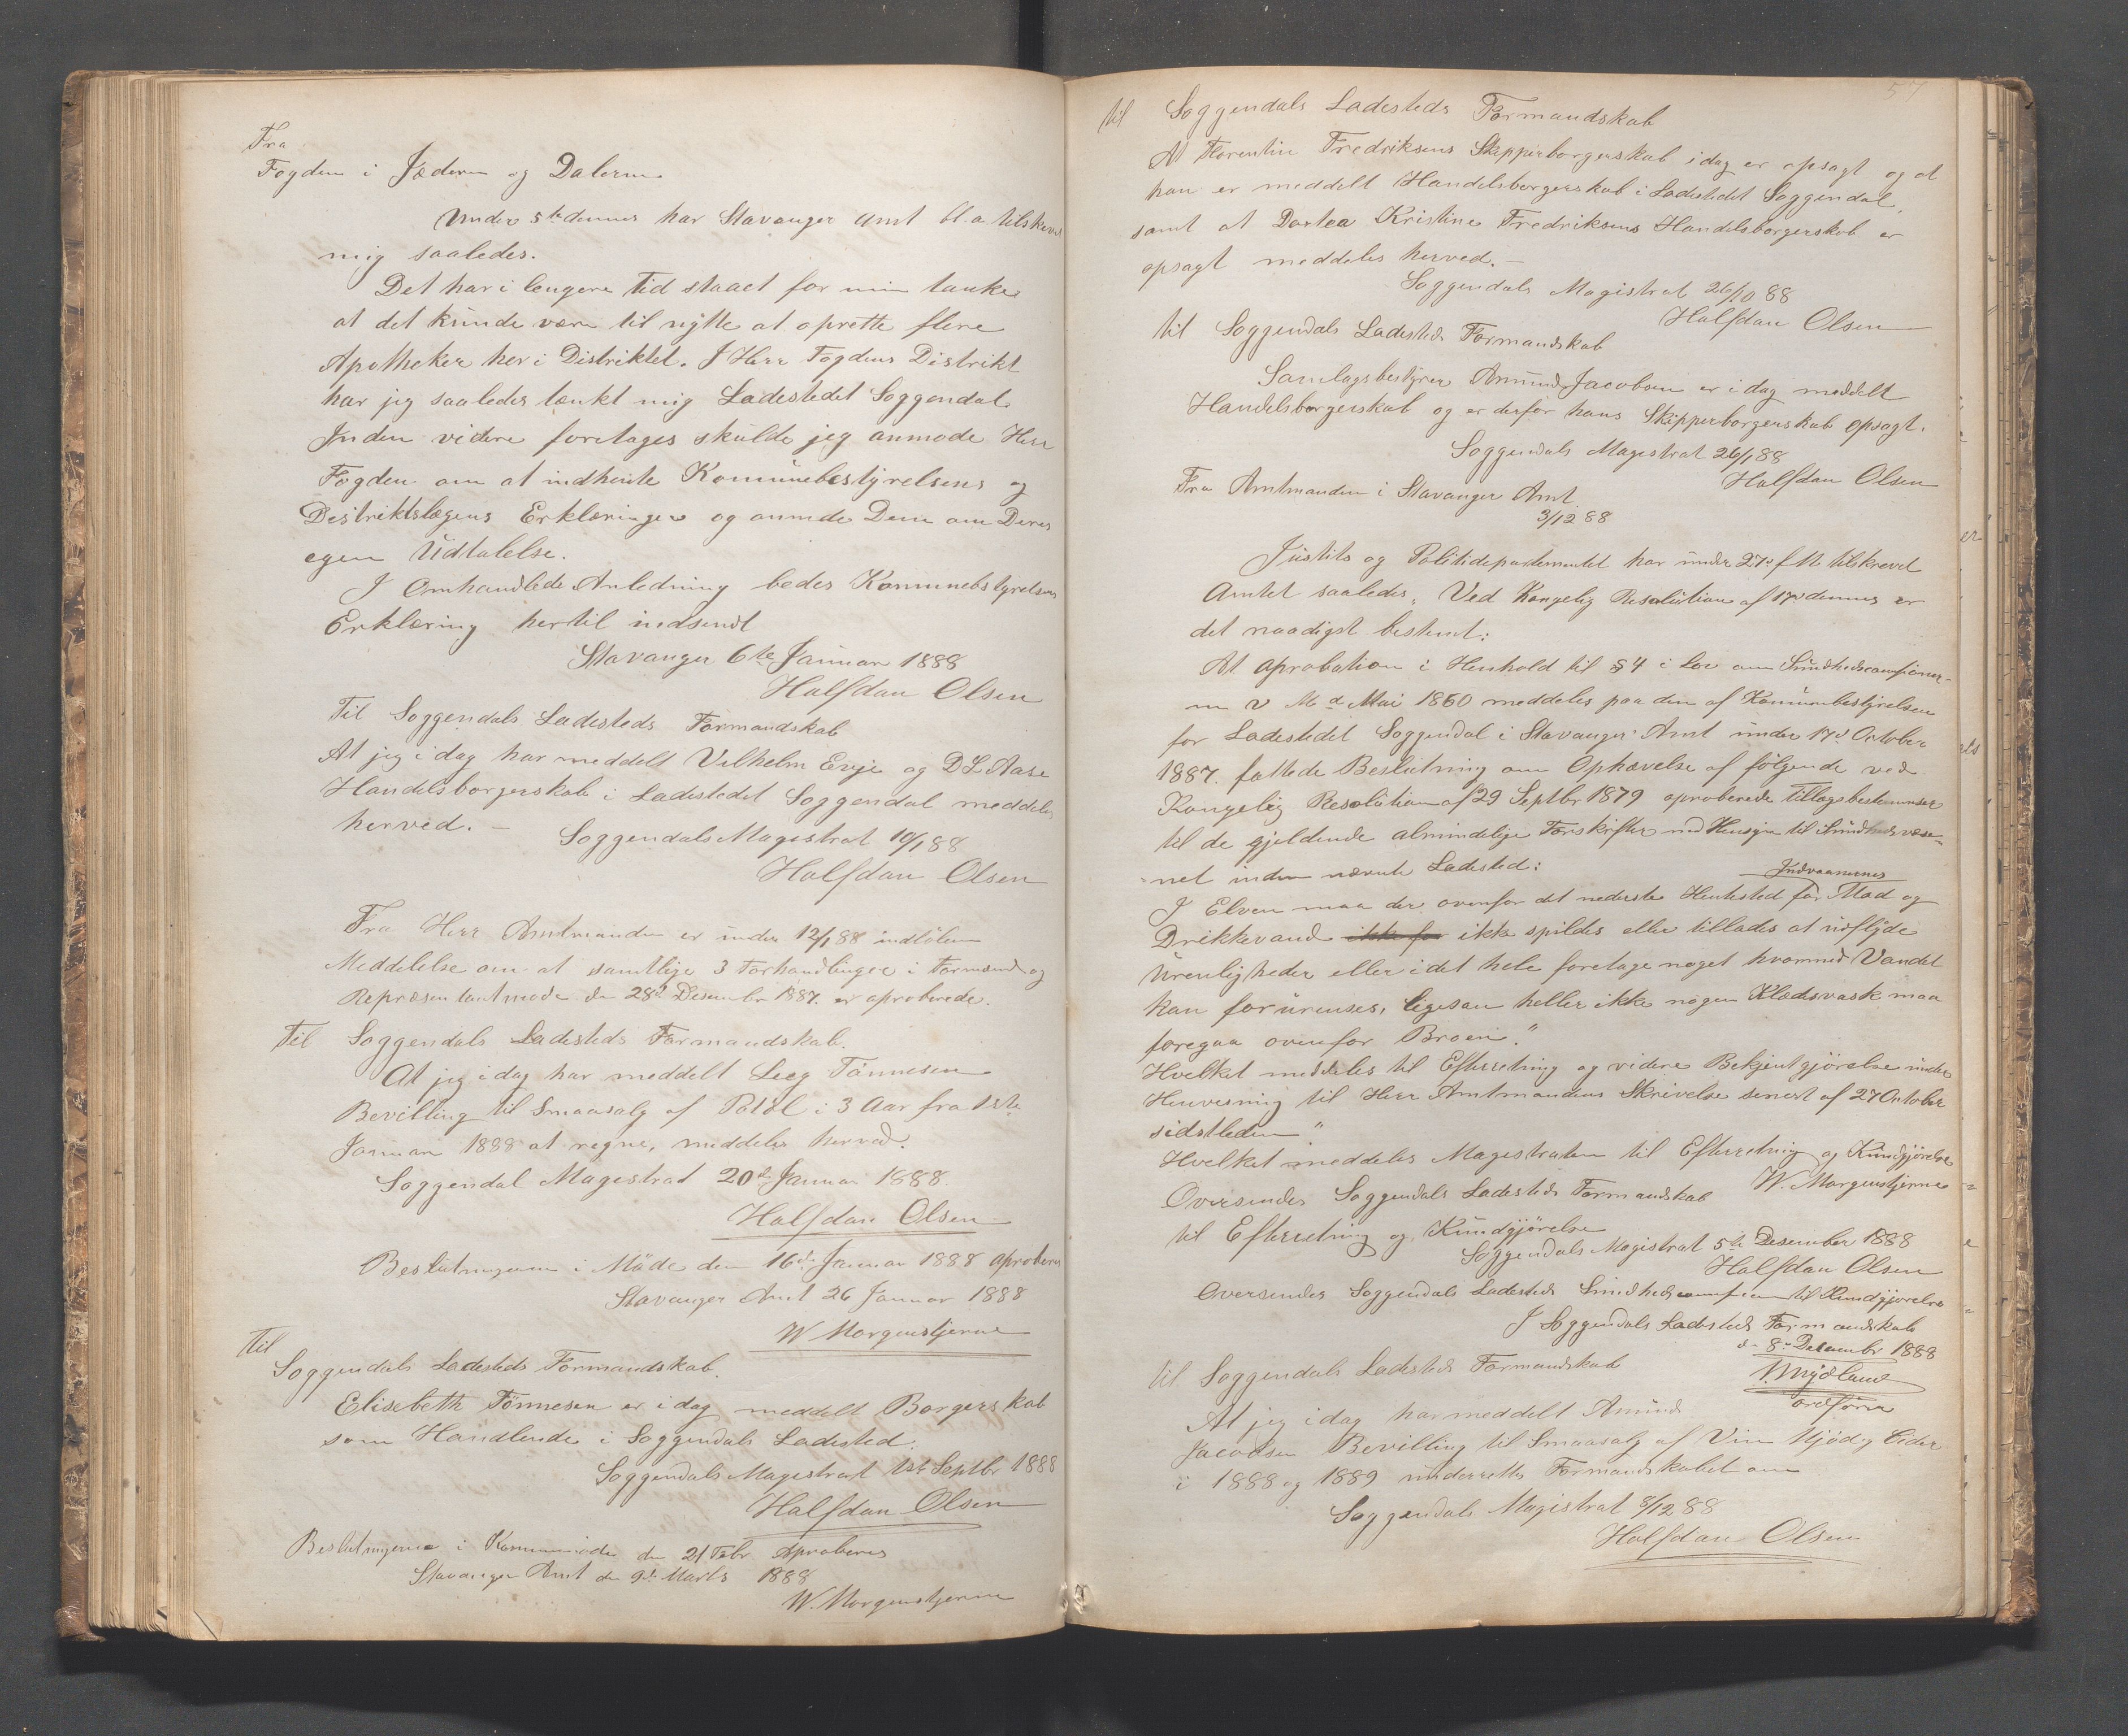 Fra
Fogden i Jæderen og Dalerne
Under 5te dennes har Stavanger Amt bl.a. tilskrevet
mig saaledes.
Det har i lengere Tid staaet for min tanke
at det kunde være til nytte at oprette flere
Apotheker her i Distriktet. I Herr Fogdens Distrikt
har jeg saaledes tænkt mig Ladestedet Soggendal.
Inden videre foretages skulde jeg anmode Herr
Fogden om at indhente Kommunebestyrelsens og
Distriktslægens Erklæringer og anmode Dem om Deres
egen Udtalelse.
I Omhandlede Anledning bedes Kommunebestyrelsens
Erklæring hertil indsendt
Stavanger 6te Januar 1888
Halfdan Olsen
Til Soggendals Ladesteds Formandskab
At jeg i dag har meddelt Vilhelm Evje og D L Aase
Handelsborgerskab i Ladestedet Soggendal meddeles
herved. —
Soggendals Magistrat 10/1 88
Halfdan Olsen
Fra Herr Amtmanden er under 12/1 88 indløben
Meddelelse om at samtlige 3 Forhandlinger i Formænd og
Repræsentantmøde den 28d Desember 1887. er aproberede.
Til Soggendals Ladesteds Formandskab.
At jeg i dag har meddelt Leeg Tönnesen
Bevilling til Smaasalg af Potöl i 3 Aar fra 1ste
Januar 1888 at regne, meddeles herved.
Soggendal Magistrat 20d Januar 1888.
Halfdan Olsen
Beslutningerne i Møde den 16d Januar 1888 aproberes
Stavanger Amt 26 Januar 1888
W Morgenstjerne
Til
Soggendals Ladesteds Formandskab.
Elisebeth Tönnesen er i dag meddelt Borgerskab
som Handlende i Soggendals Ladested.
Soggendals Magistrat 1ste Septbr 1888
Halfdan Olsen
Beslutningerne i Kommunemøde den 21 Febr Aproberes
Stavanger Amt den 9d Marts 1888
W. Morgenstjerne
57
til Soggendals Ladesteds Formandskab
At Florentin Fredriksens Skipperborgerskab i dag er opsagt og at
han er meddelt Handelsborgerskab i Ladestedet Soggendal,
samt at Dortea Kristine Fredriksens Handelsborgerskab er
opsagt meddeles herved. —
Soggendals Magistrat 26/10 88
Halfdan Olsen
til Soggendals Ladesteds Formandskab
Samlagsbestyrer Amund Jacobsen er i dag meddelt
Handelsborgerskab og er derfor hans Skipperborgerskab opsagt.
Soggendals Magistrat 26/1 88
Halfdan Olsen
Fra Amtmanden i Stavanger Amt
3/12 88
Justits og Politidepartementet har under 27d f M tilskrevet
Amtet saaledes. „Ved Kongelig Resolution af 17d dennes er
det naadigst bestemt:
At aprobation i Henhold til § 4 i Lov om Sundhedscomisioner-
m v Mai 1860 meddeles paa den af Kommunbestyrelsen
for Ladestedet Soggendal i Stavanger Amt under 17d October
1887. fattede Beslutning om Ophævelse af følgende ved
Kongelig Resolution af 29 Septbr 1879 aproberede Tillægsbestemmelser
til de gjeldende almindelige Forskrifter med Hensyn til Sundhedsvæse-
net inden nævnte Ladested:
Indvaanernes
I Elven maa der ovenfor det nederste Hentested for Mad og
Drikkevand ikke for ikke spildes eller tillades at udflyde
Urenligheder eller i det hele foretage noget hvormed Vandet
kan forurenses, ligesom heller ikke nogen Klædsvask maa
foregaa ovenfor Broen."
Hvelket meddeles til Efterretning og videre Bekjentgjörelse under
Henvisning til Herr Amtmandens Skrivelse senest af 27 October
sidstleden."
Hvelket meddeles Magistraten til Efterretning og Kundgjörelse
W. Morgenstjerne
Oversendes Soggendals Ladesteds Formandskab
til Efterretning og Kundgjörelse
Soggendals Magistrat 5te Desember 1888
Halfdan Olsen
Oversendes Soggendals Ladesteds Sundhedscommision til Kundgjørelse
I Soggendals Ladesteds Formandskab
d. 8de Desember 1888
Mydland
ordfører
til Soggendals Ladesteds Formandskab
At jeg i dag har meddelt Amund
Jacobsen Bevilling til Smaasalg af Vin Mjöd og Cider
i 1888 og 1889 underrettes Formandskabet om
Soggendals Magistrat 8/12 88
Halfdan Olsen